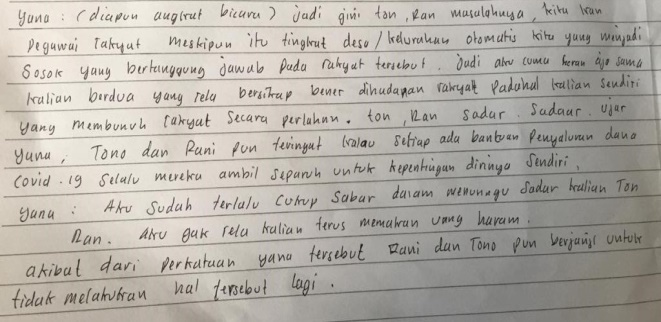 Yana : (diapun angkat bicara) jadi gini ton, Ran masalahnya, kita kan
Pegawai rakyat meskipun itu tingkat desa/kelurahan otomatis kita yang menjadi
Sosok yang bertanggung jawab pada rakyat tersebut. Jadi aku cuma heran ajo sama
kalian berdua yang rela bersikap bener dihadapan rakyat Padahal kalian sendiri
yang membunuh rakyat secara perlahan. ton, Ran sadar. Sadaur. Ujar
Yana, Tono dan Rani pun teringat kalau setiap ada bantuan Penyaluran dana
Covid-19 Selalu mereka ambil separuh untuk kepentingan dirinya sendiri.
Yana : Aku Sudah terlalu Cukup Sabar dalam menunggu Sadar kalian Ton
Ran. Aku gak rela kalian terus memakan uang haram.
akibat dari perkataan yana tersebut Rani dan Tono pun berjanji untuk
tidak melakukan hal tersebut lagi.